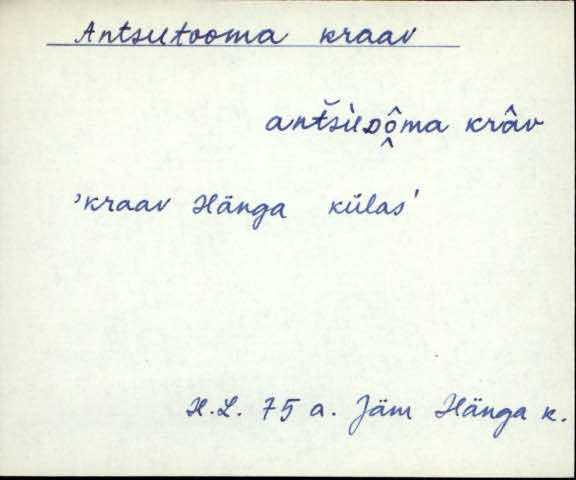 Antsutooma kraav
antšùᴅô̭ma krâv
'kraav Hänga külas'
H.L. 75 a. Jäm Hänga k.